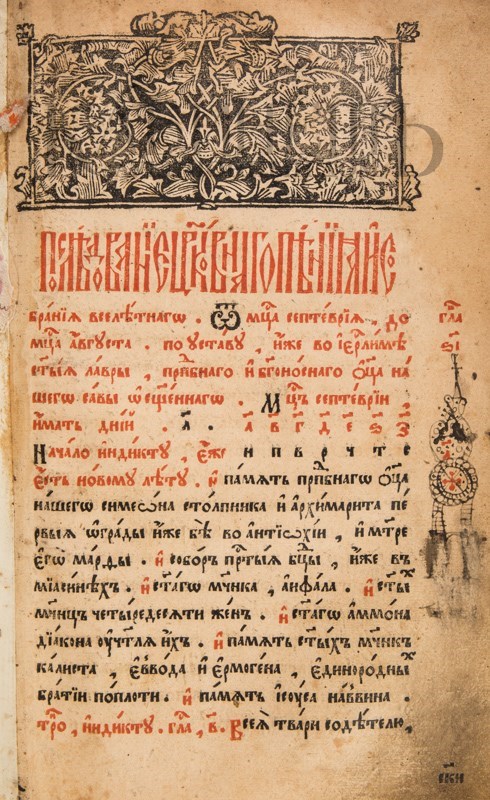 Послѣдованїе црко́внагѡ пѣ́нїѧ и҆ со
бра́нїѧ вселѣ́тнагѡ . Ѿ мц҃а септе́врїѧ , до
мц҃а а҆́вгꙋста . по ᲂу҆ста́вꙋ , и҆́же во і҆ерⷭ҇ли́мѣ
ст҃ы́ѧ ла́вры , прпⷣбнаго и҆ бг҃оно́снаго ѻ҆ц҃а̀ на́
шегѡ са́вы ѡ҆сщ҃е́ннагѡ . Мцⷭ҇ъ септе́врїи ,
и҆́мать дні́й . л҃ . а в г д е ѕ з
Нача́ло и҆ндїктꙋ , є҆́же и п в р ч т с
є҆́сть но́вомꙋ лѣ́тꙋ . и҆ па́мѧть прпⷣбнагѡ ѻ҆ц҃а̀
на́шегѡ симеѡ́на сто́лпника и҆ а҆рхимари́та пе́
рвыѧ ѡ҆гра́ды и҆́же бѣ̀ во а҆нтїѡхі́и , и҆ мт҃ре
є҆гѡ̀ ма́рды . и҆ собо́ръ прⷭ҇ты́ѧ бцⷣы , и҆́же въ
мїаси́нѣхъ . и҆ ст҃а́гѡ мч҃нка , а҆ифа́ла . и҆ ст҃ы́хъ
мч҃ницъ четы́редесѧти же́нъ . и҆ ст҃а́гѡ а҆ммо́на
дїа́кона ᲂу҆чт҃лѧ и҆́хъ . и҆ па́мѧть ст҃ы́хъ мч҃нкъ
кали́ста , є҆́ввода и҆ є҆рмоге́на , є҆диноро́дныхъ
бра́тїи по пло́ти . и҆ па́мѧть і҆сꙋ́са на́ввина .
тро́ , и҆ндїктꙋ . гла́ , в҃ . Всеѧ̀ тва́ри содѣ́телю ,
гла
ѕ҃і